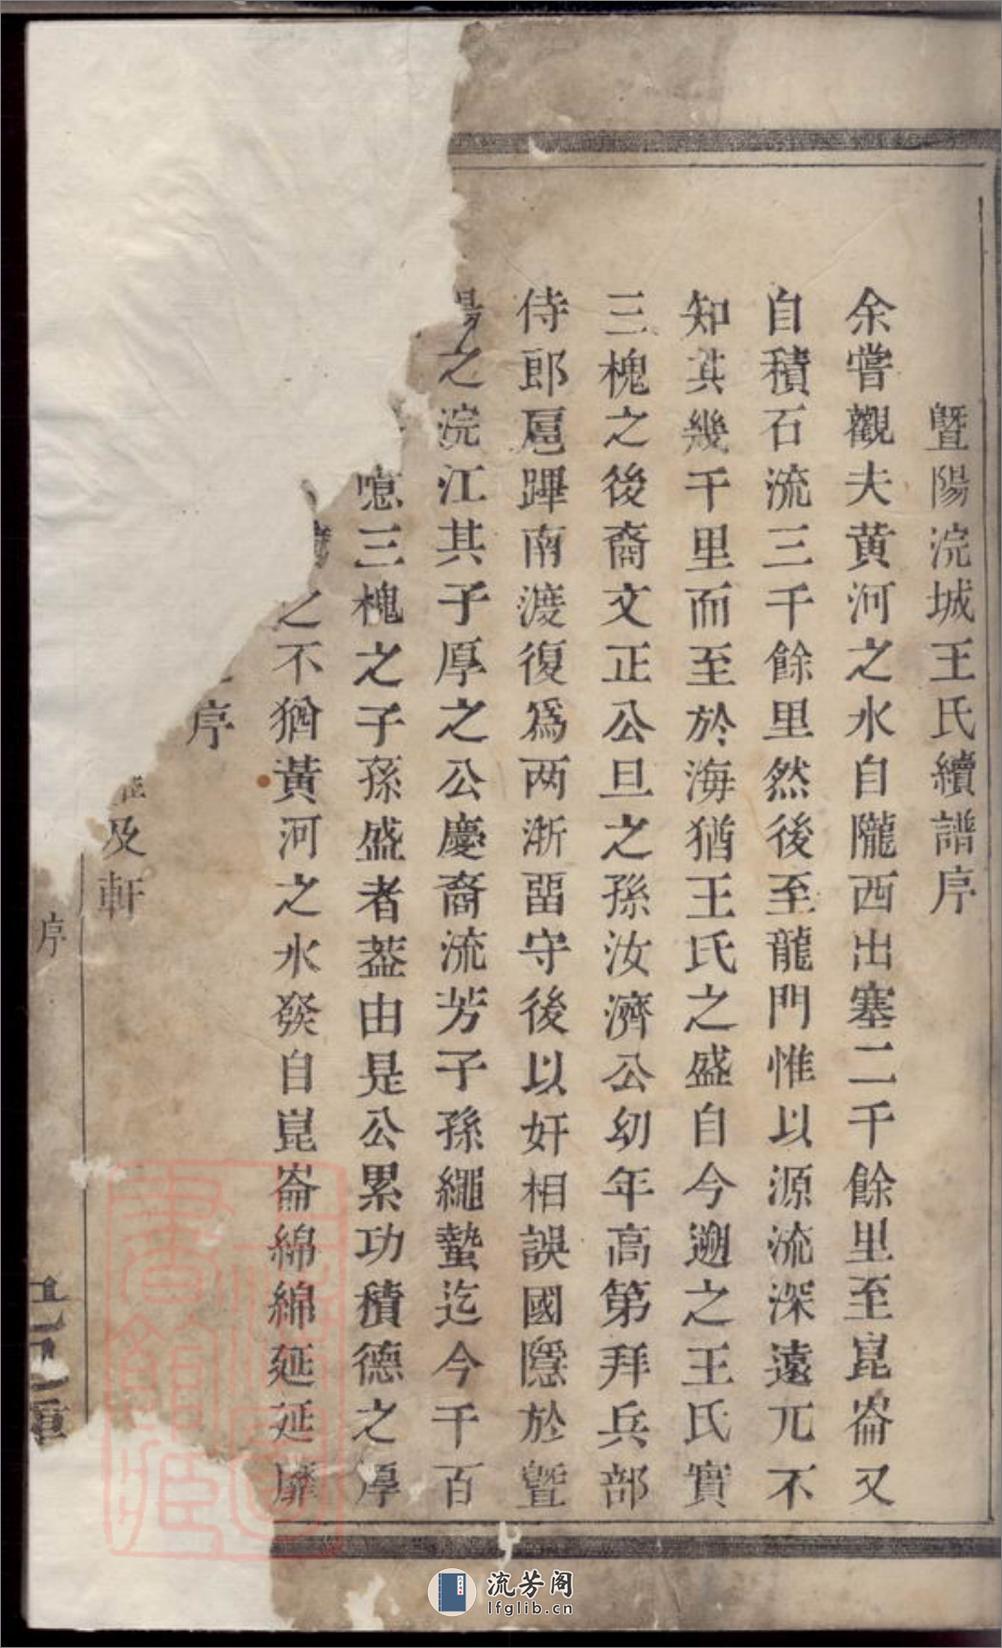 暨陽浣城王氏續譜序
余嘗觀夫黄河之水自隴西出塞二千餘里至崑崙又
自積石流三千餘里然後至龍門惟以源流深遠兀不
知其幾千里而至於海猶王氏之盛自今遡之王氏實
三槐之後裔文正公旦之孫汝濟公幼年高第拜兵部
侍郎扈蹕南渡復爲两浙畱守後以奸相誤國隱於暨
陽之浣江其子厚之公慶裔流芳子孫繩蟄迄今千百
噫三槐之子孫盛者葢由是公累功積德之厚
之不猶黄河之水發自崑崙綿綿延延靡
序
及軒
序
流芳阁
lfglib.cn